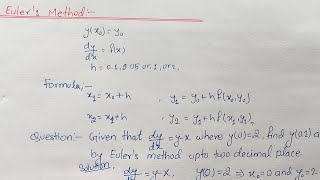 Euler's Method:-
y(x₀) = y₀
dy/dx = f(x)
h = 0.1, 0.05 or, 1, or 2.
Formula:-
x₁ = x₀ + h , y₁ = y₀ + h f(x₀, y₀)
x₂ = x₁ + h , y₂ = y₁ + h f(x₁, y₁)
Question:- Given that dy/dx = y-x where y(0)=2, find y(0.2)
by Euler's method upto two decimal place
Solution, dy/dx = y-x, y(0)=2 ⇒ x₀=0 and y₀=2